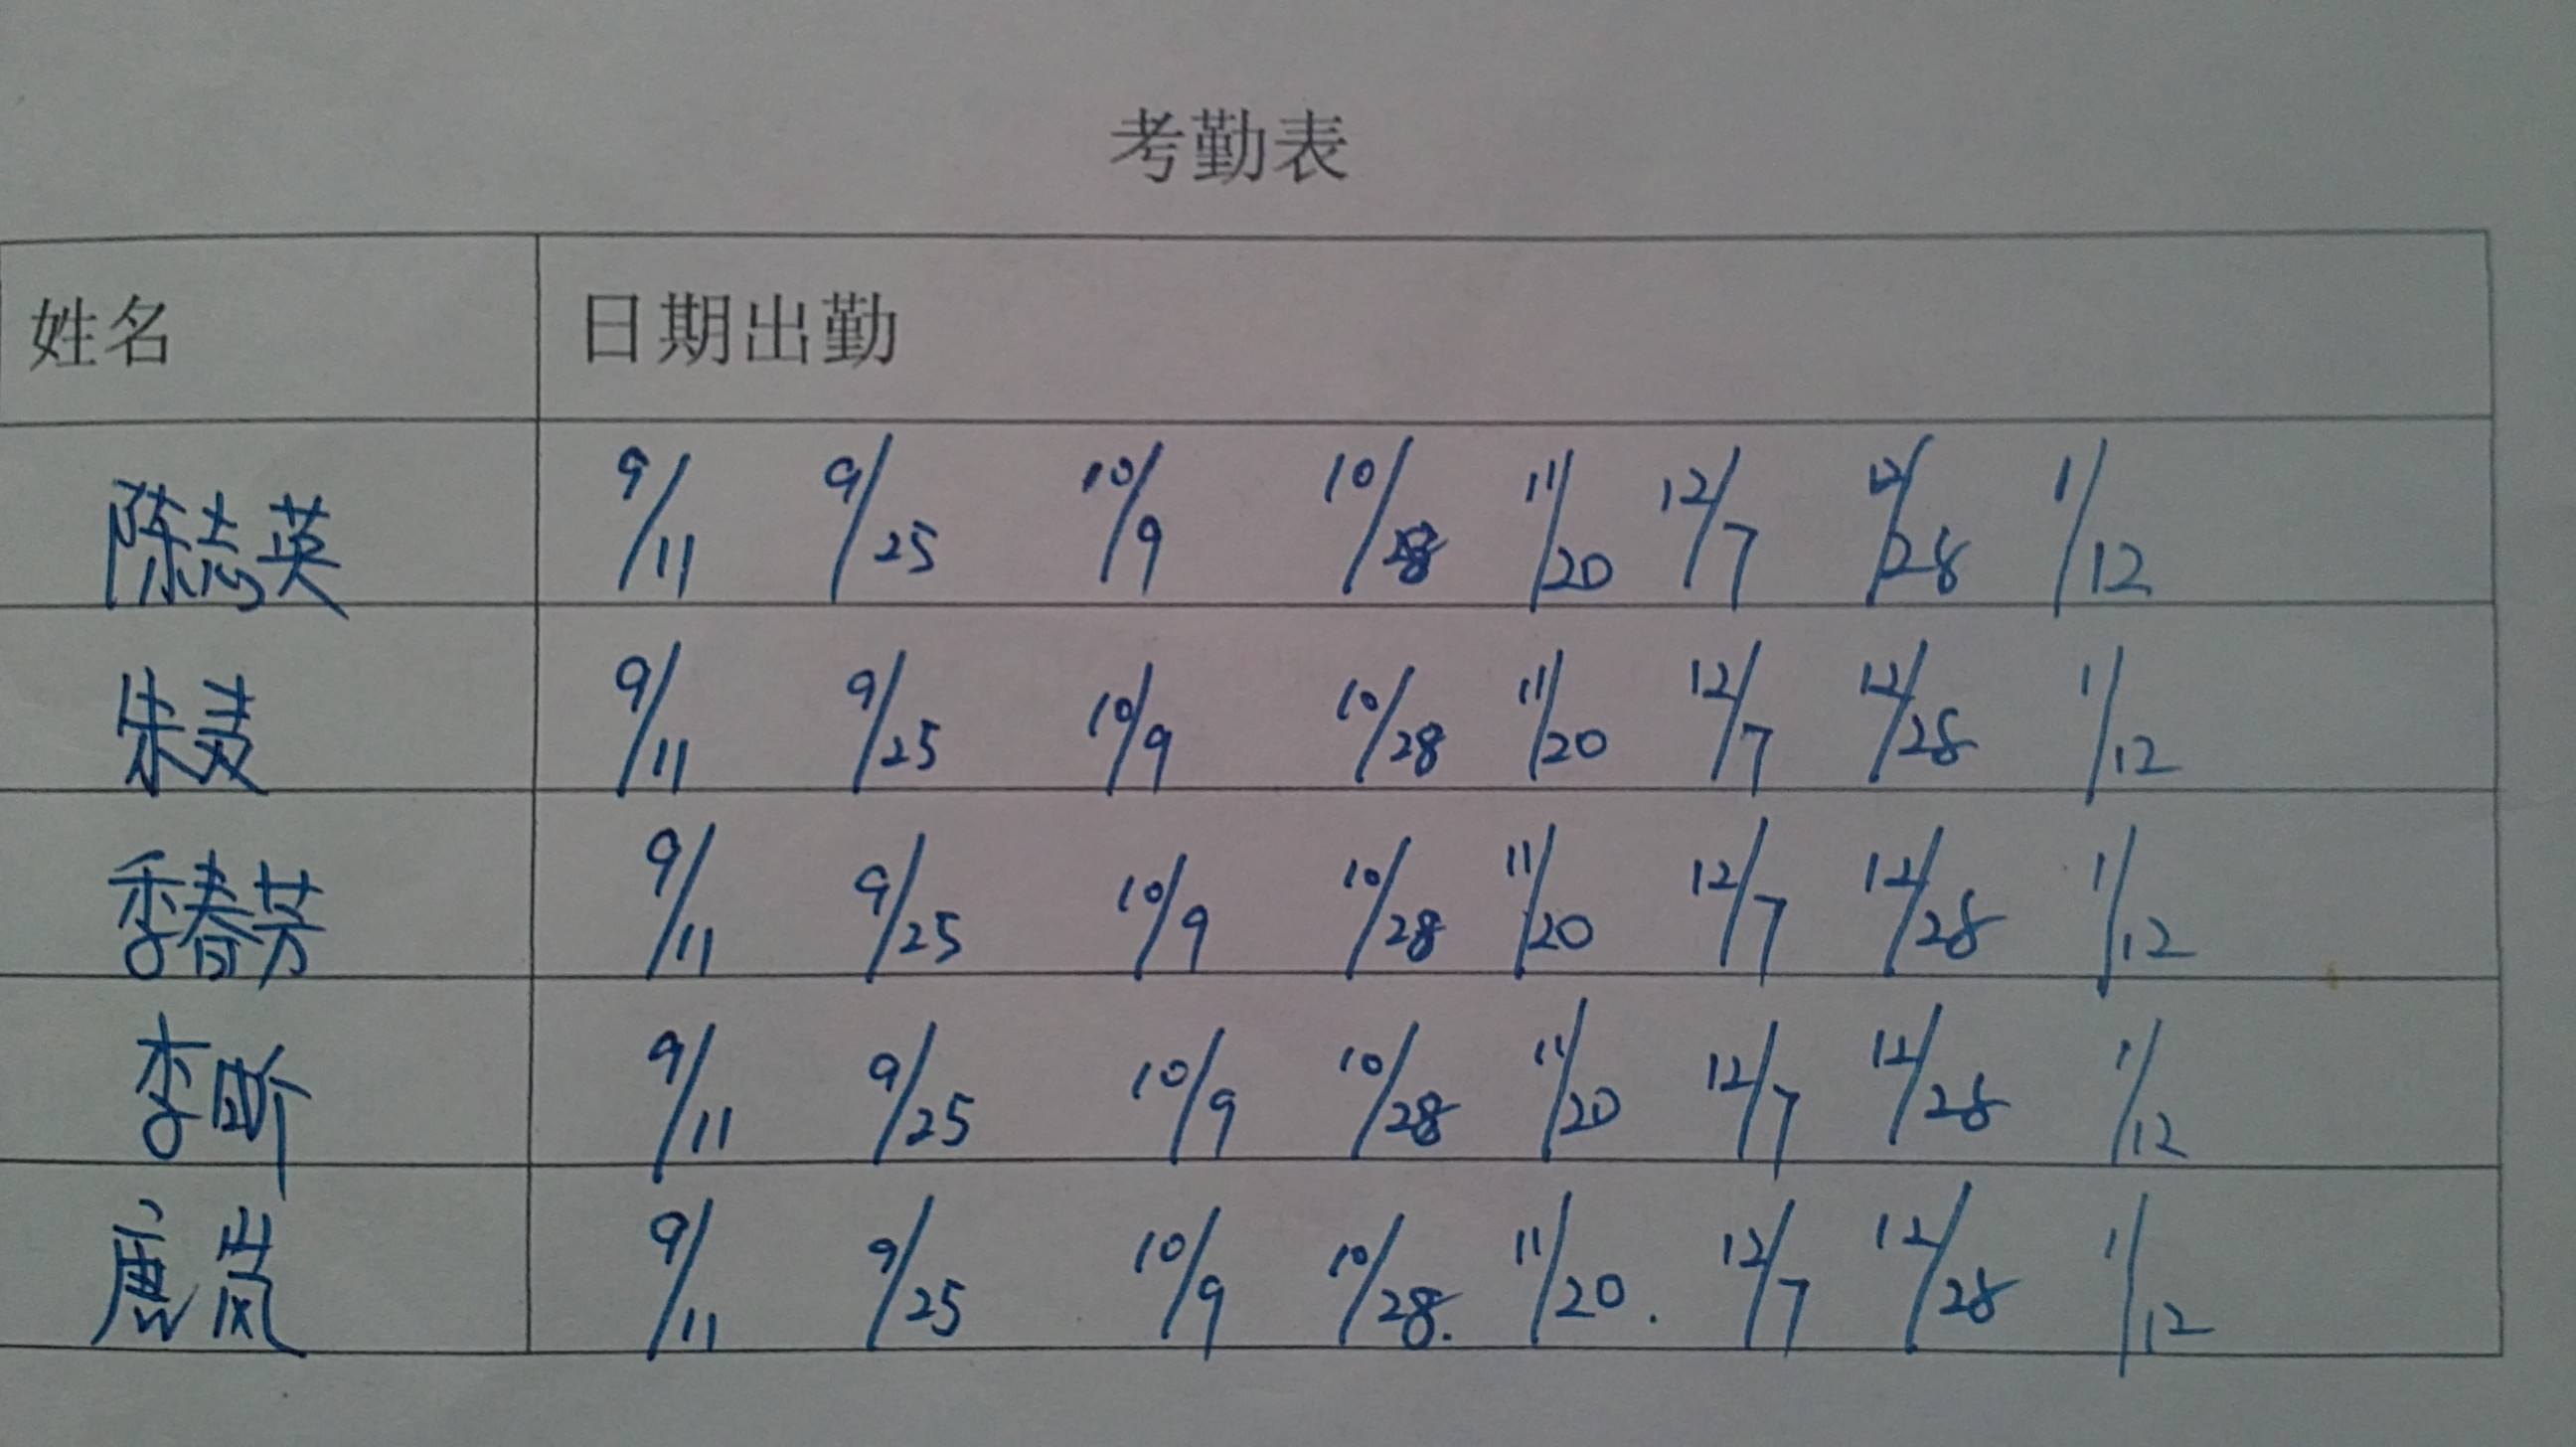 考勤表
姓名 日期出勤
陈志英 9/11 9/25 10/9 10/28 11/20 12/7 12/28 1/12
朱麦 9/11 9/25 10/9 10/28 11/20 12/7 12/28 1/12
季春芳 9/11 9/25 10/9 10/28 11/20 12/7 12/28 1/12
李昕 9/11 9/25 10/9 10/28 11/20 12/7 12/28 1/12
唐岚 9/11 9/25 10/9 10/28. 11/20. 12/7 12/28 1/12